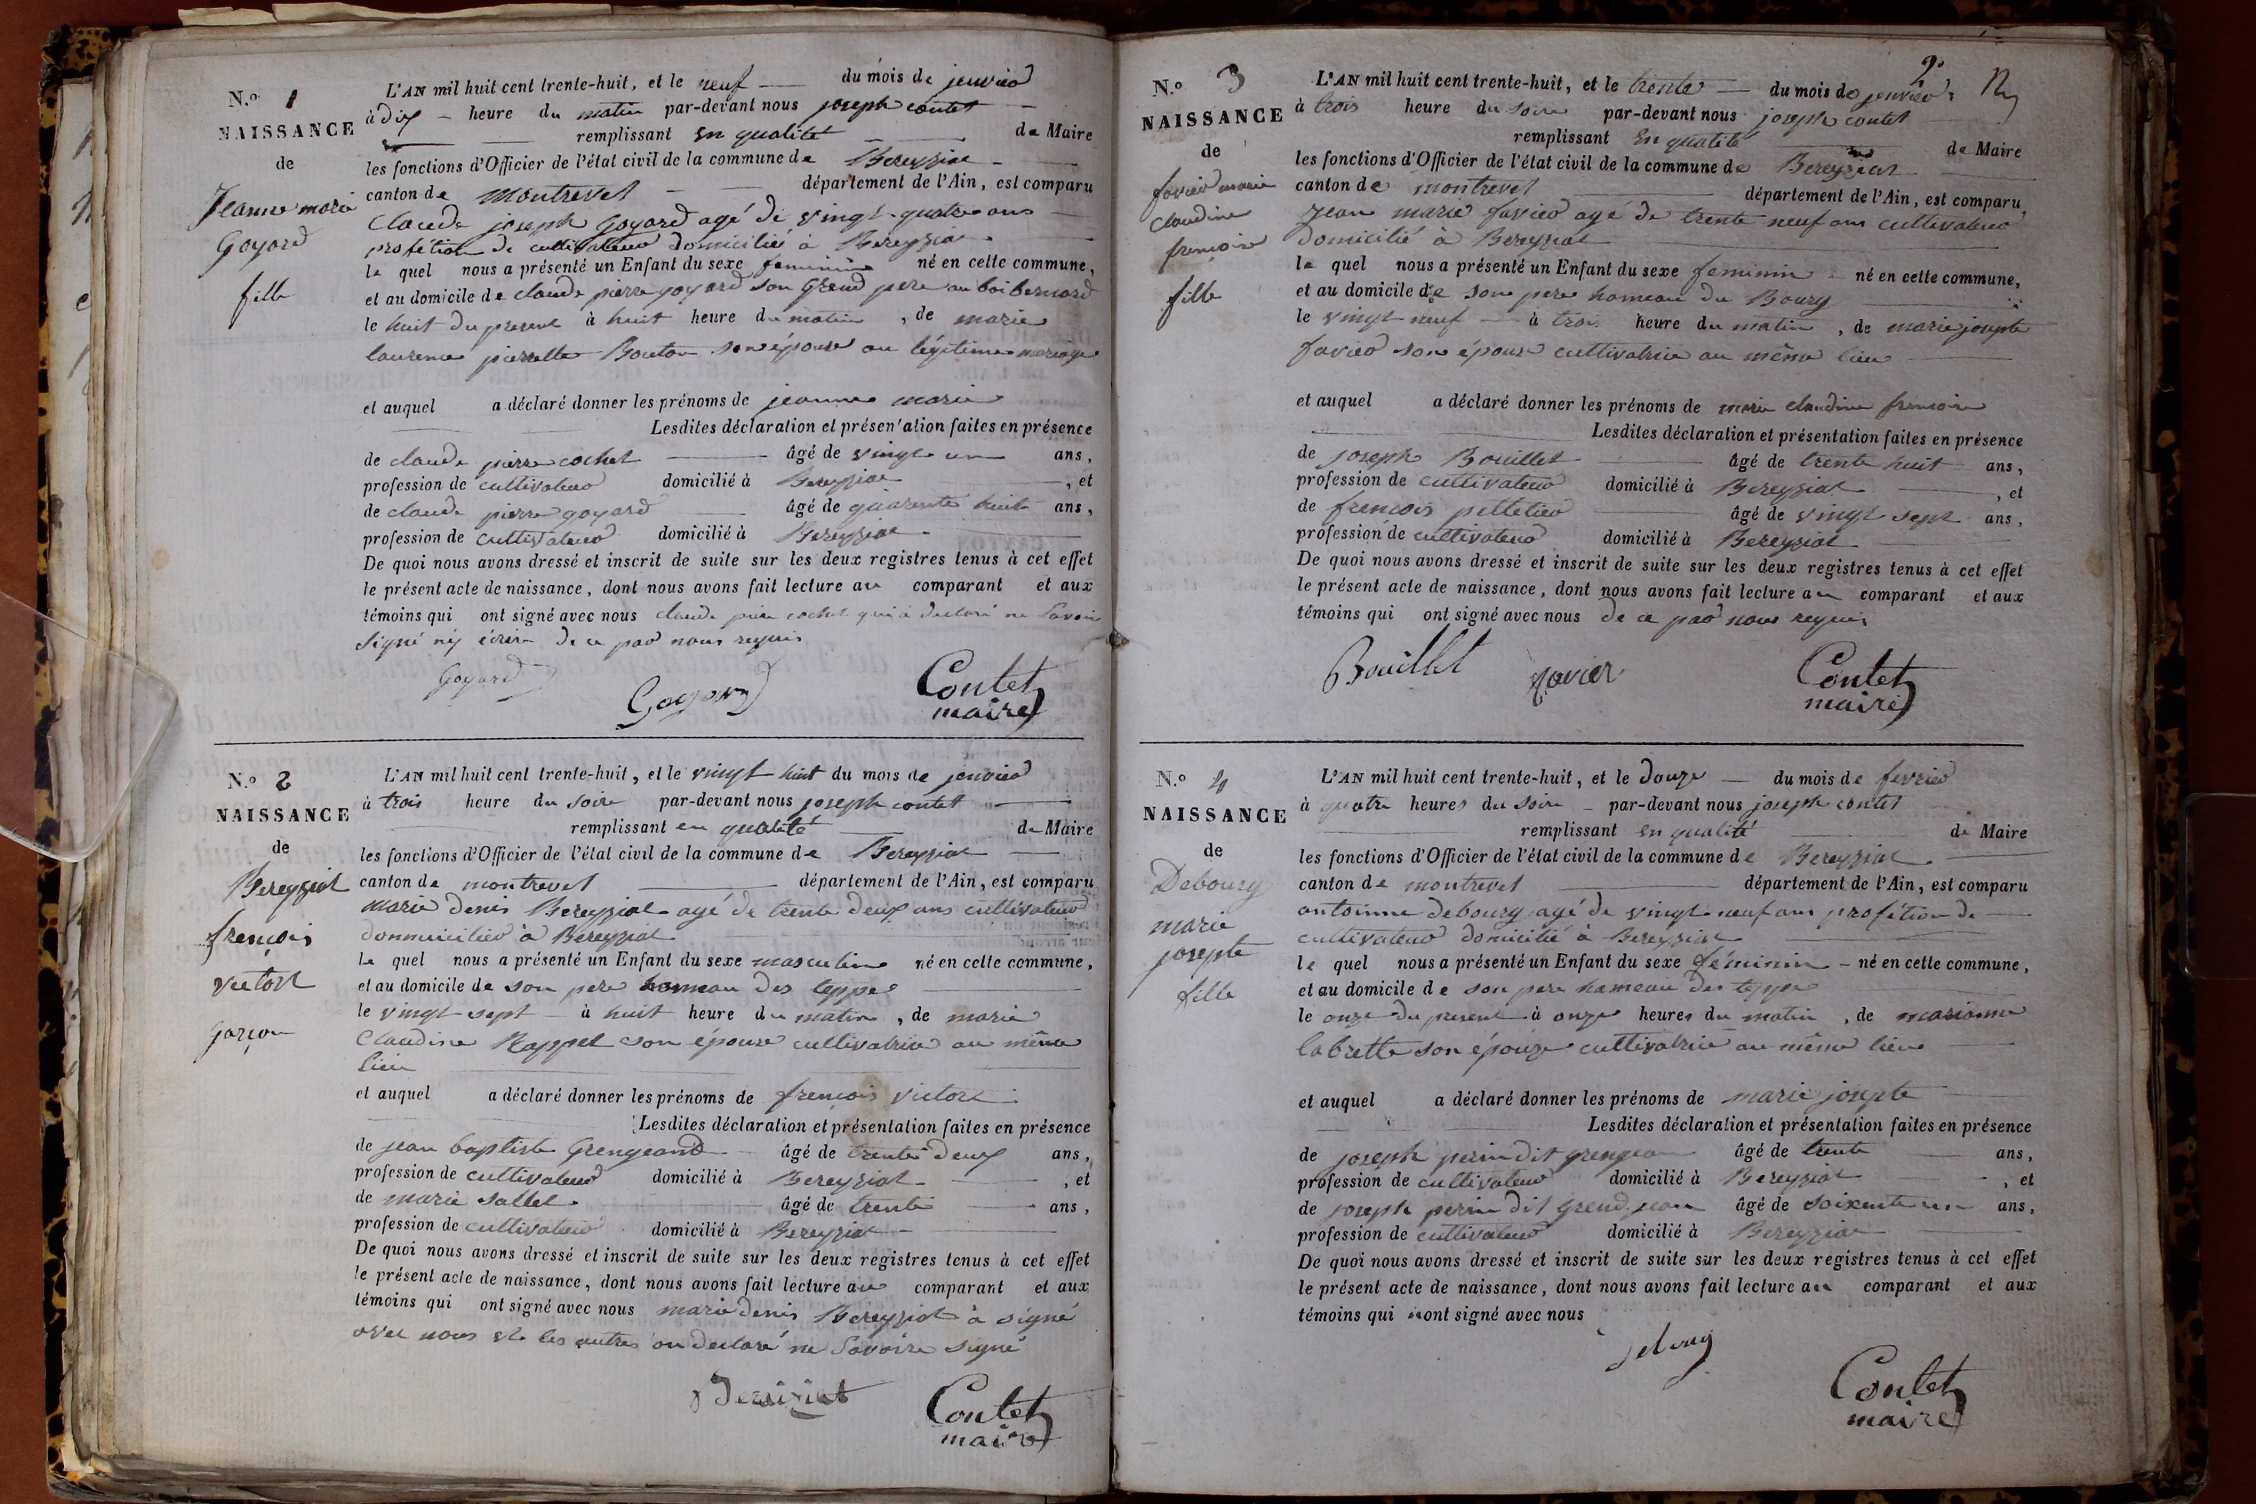 N.o 1
NAISSANCE
de
Jeanne marie
Goyard
fille
L'AN mil huit cent trente-huit, et le neuf du mois de jenvier
à dix heure du matin par-devant nous joseph contet
remplissant en qualité de Maire
les fonctions d'Officier de l'état civil de la commune de Bereyziat
canton de Montrevel département de l'Ain, est comparu
Claude joseph Goyard agé de vingt-quatre ans
profétion de cultivateur domicilié à Bereyziat
le quel nous a présenté un Enfant du sexe feminin né en cette commune,
et au domicile de claude pierre goyard son Grend pere au boi bernard
le huit du present à huit heure du matin, de marie
laurence pierrette Bouton son épouse au légitime mariage
et auquel a déclaré donner les prénoms de jeanne marie
Lesdites déclaration et présentation faites en présence
de claude pierre cochet âgé de vingt un ans,
profession de cultivateur domicilié à Bereyziat, et
de claude pierre goyard âgé de quarente huit ans,
profession de cultivateur domicilié à Bereyziat
De quoi nous avons dressé et inscrit de suite sur les deux registres tenus à cet effet
le présent acte de naissance, dont nous avons fait lecture au comparant et aux
témoins qui ont signé avec nous claude pierre cochet qui à declaré ne Savoir
Signé ny écrire de ce par nous requis
Goyard
Goyard
Contet
maire
N.o 2
NAISSANCE
de
Bereyziat
frençois
victort
garçon
L'AN mil huit cent trente-huit, et le vingt huit du mois de jenvier
à trois heure du soire par-devant nous joseph contet
remplissant en qualité de Maire
les fonctions d'Officier de l'état civil de la commune de Bereyziat
canton de montrevel département de l'Ain, est comparu
Marie denis Bereyziat agé de trente deux ans cultivateur
dommicilier à Bereyziat
le quel nous a présenté un Enfant du sexe masculin né en cette commune,
et au domicile de son pere hameau des teppes
le vingt-sept à huit heure du matin, de marie
Claudine Rappet son épouse cultivatrice au même
lieu
et auquel a déclaré donner les prénoms de frençois victort
Lesdites déclaration et présentation faites en présence
de jean baptiste Grengeand âgé de trente deux ans,
profession de cultivateur domicilié à Bereyziat, et
de marie sallet âgé de trente ans,
profession de cultivateur domicilié à Bereyziat
De quoi nous avons dressé et inscrit de suite sur les deux registres tenus à cet effet
le présent acte de naissance, dont nous avons fait lecture au comparant et aux
témoins qui ont signé avec nous marie denis Bereyziat à signé
avec nous et les autres on declaré ne Savoire signé
Contet
maire
2
N.o 3
NAISSANCE
de
favier marie
claudine
frençoise
fille
L'AN mil huit cent trente-huit, et le trente du mois de jenvier
à trois heure du soire par-devant nous joseph contet
remplissant en qualité de Maire
les fonctions d'Officier de l'état civil de la commune de Bereyziat
canton de montrevel département de l'Ain, est comparu
jean marie favier agé de trente neuf ans cultivateur
domicilié à Bereyziat
le quel nous a présenté un Enfant du sexe feminin né en cette commune,
et au domicile de son pere hameau du Bourg
le vingt-neuf à trois heure du matin, de marie josepte
favier son épouse cultivatrice au même lieu
et auquel a déclaré donner les prénoms de marie claudine frençoise
Lesdites déclaration et présentation faites en présence
de joseph Bouillet âgé de trente huit ans,
profession de cultivateur domicilié à Bereyziat, et
de frencois pelletier âgé de vingt sept ans,
profession de cultivateur domicilié à Bereyziat
De quoi nous avons dressé et inscrit de suite sur les deux registres tenus à cet effet
le présent acte de naissance, dont nous avons fait lecture au comparant et aux
témoins qui ont signé avec nous de ce par nous requis
Bouillet favier
Contet
maire
N.o 4
NAISSANCE
de
Debourg
marie
josepte
fille
L'AN mil huit cent trente-huit, et le douze du mois de fevrier
à quatre heures du soire par-devant nous joseph contet
remplissant en qualité de Maire
les fonctions d'Officier de l'état civil de la commune de Bereyziat
canton de montrevel département de l'Ain, est comparu
antoinne debourg agé de vingt neuf ans profétion de
cultivateur domicilié à Bereyziat
le quel nous a présenté un Enfant du sexe féminin né en cette commune,
et au domicile de son pere hameau des teppes
le onze du present à onze heures du matin, de marianne
labrette son épouze cultivatrice au même lieu
et auquel a déclaré donner les prénoms de marie josepte
Lesdites déclaration et présentation faites en présence
de joseph perin dit grengean âgé de trente ans,
profession de cultivateur domicilié à Bereyziat, et
de joseph perin dit Grend jean âgé de soixente un ans,
profession de cultivateur domicilié à Bereyziat
De quoi nous avons dressé et inscrit de suite sur les deux registres tenus à cet effet
le présent acte de naissance, dont nous avons fait lecture au comparant et aux
témoins qui nont signé avec nous
debourg
Contet
maire